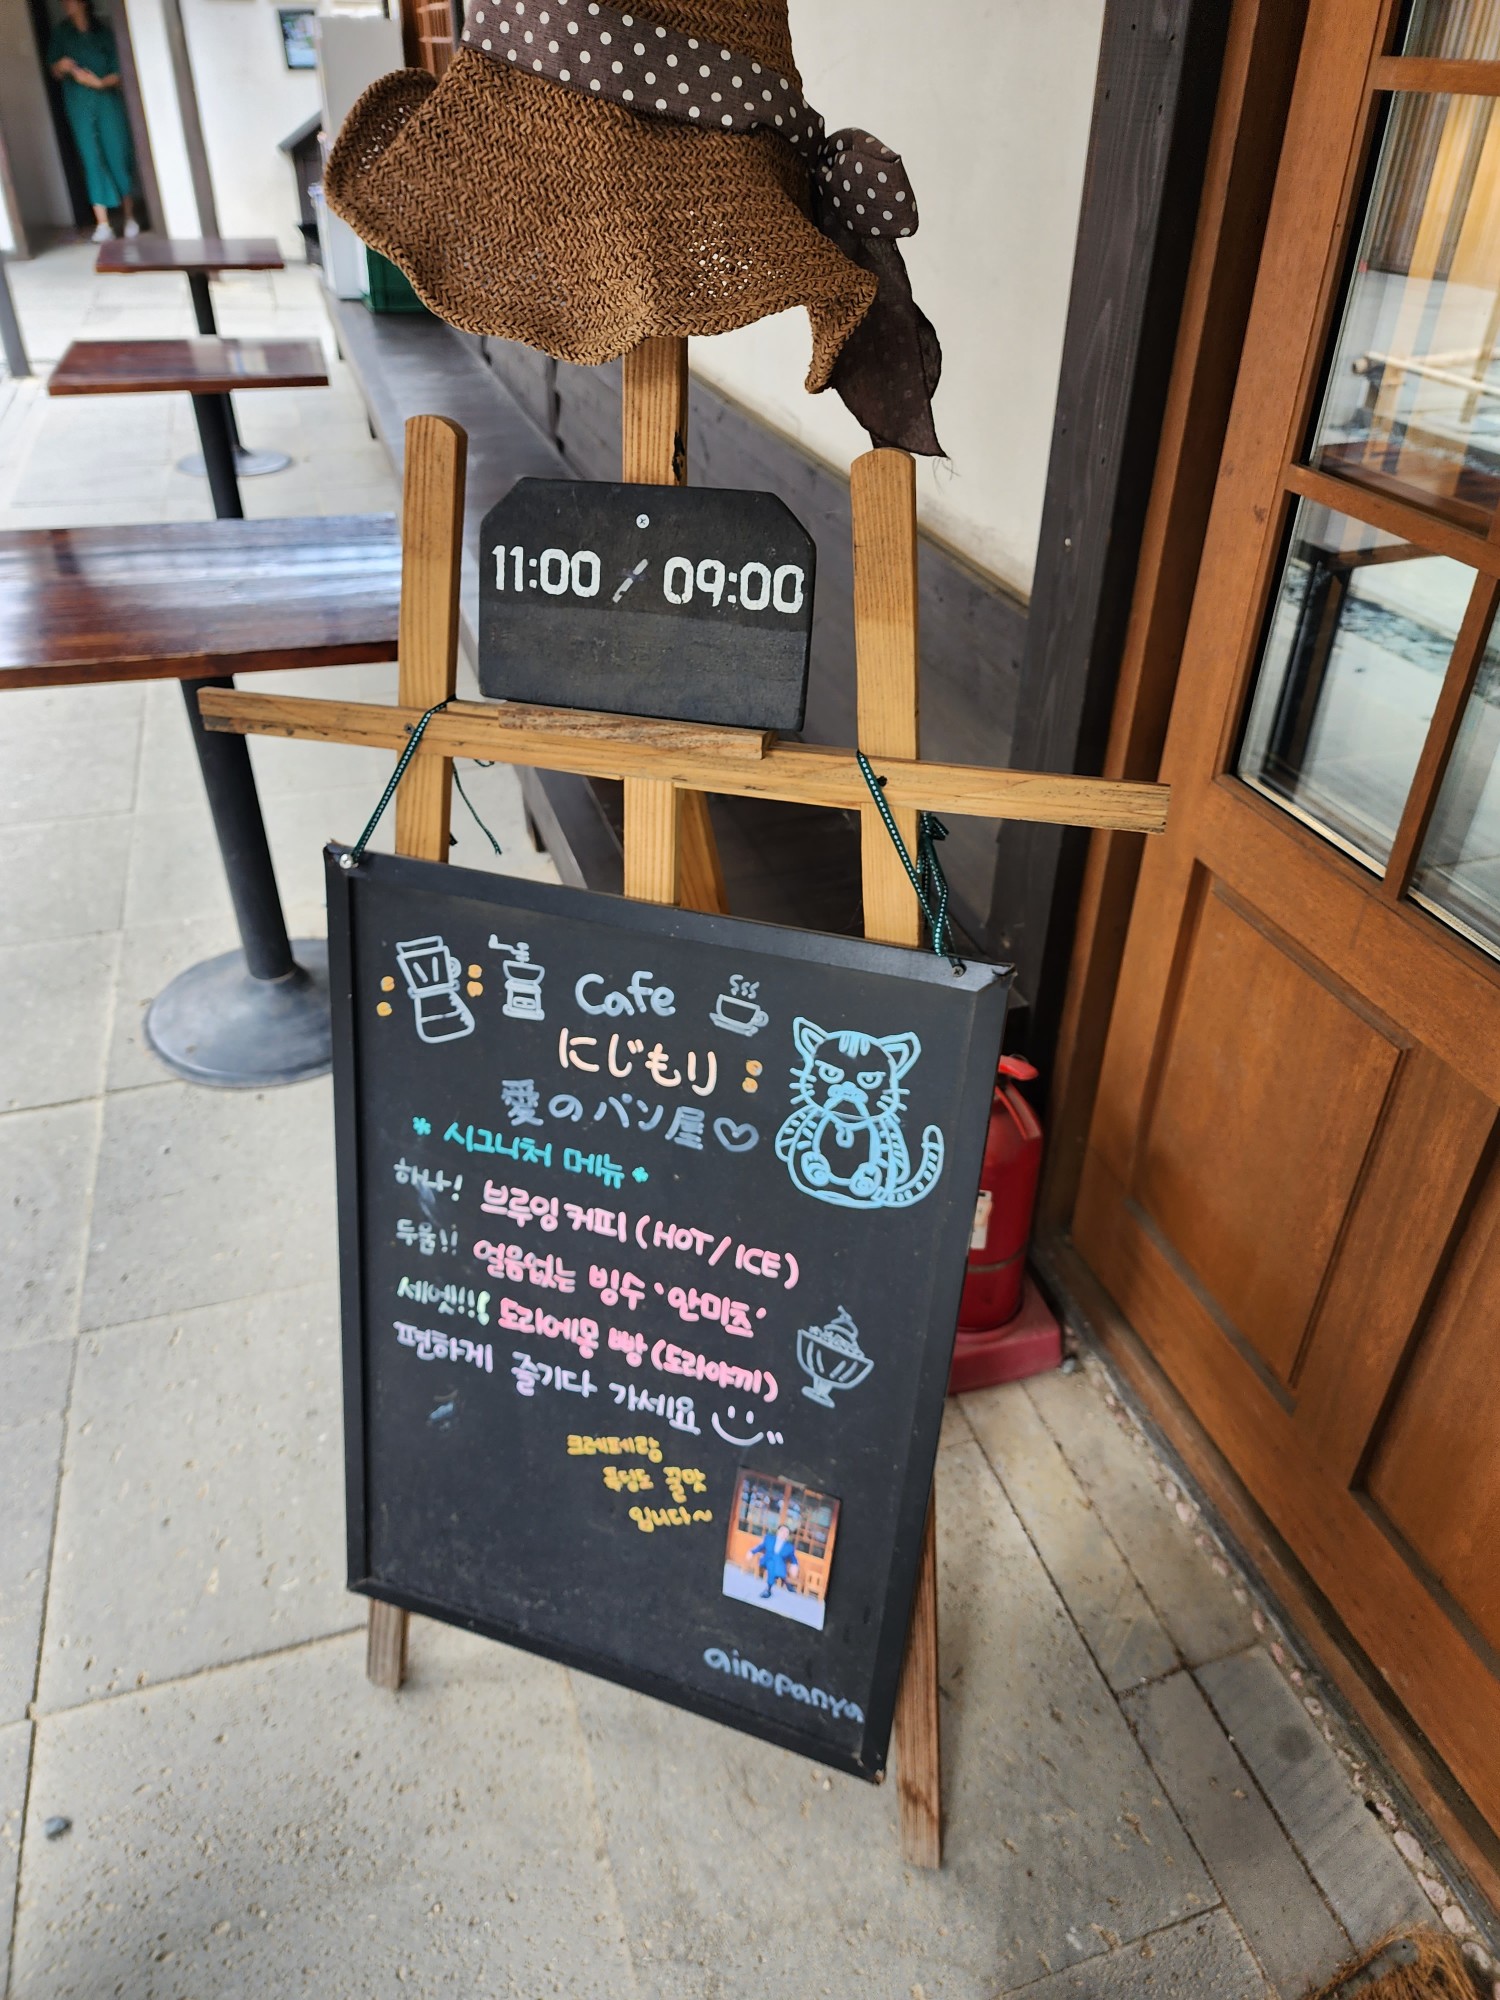 11:00 / 09:00
Cafe
にじもり
愛のパン屋♡
* 시그니처 메뉴 *
하나! 브루잉 커피 (HOT/ICE)
두움!! 얼음없는 빙수 '안미츠'
세엣!!! 도리에몽 빵 (도리야끼)
편하게 즐기다 가세요
크레페랑
푸딩도 꿀맛
입니다~
ainopanya